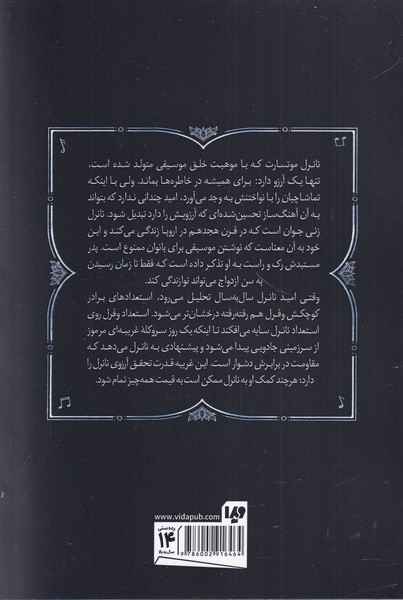 نانرل موتسارت که با موهبت خلق موسیقی متولد شده است،
تنها یک آرزو دارد: برای همیشه در خاطره‌ها بماند. ولی با اینکه
تماشاچیان را با نواختنش به وجد می‌آورد، امید چندانی ندارد که بتواند
به آن آهنگ‌ساز تحسین‌شده‌ای که آرزویش را دارد تبدیل شود. نانرل
زنی جوان است که در قرن هجدهم در اروپا زندگی می‌کند و این
خود به آن معناست که نوشتن موسیقی برای بانوان ممنوع است. پدر
مستبدش رک و راست به او تذکر داده است که فقط تا زمان رسیدن
به سن ازدواج می‌تواند نوازندگی کند.
وقتی امید نانرل سال‌به‌سال تحلیل می‌رود، استعدادهای برادر
کوچکش ولفرل هم رفته‌رفته درخشان‌تر می‌شود. استعداد ولفرل روی
استعداد نانرل سایه می‌افکند تا اینکه یک روز سروکلهٔ غریبه‌ای مرموز
از سرزمینی جادویی پیدا می‌شود و پیشنهادی به نانرل می‌دهد که
مقاومت در برابرش دشوار است. این غریبه قدرت تحقق آرزوی نانرل را
دارد؛ هرچند کمک او به نانرل ممکن است به قیمت همه‌چیز تمام شود.
ویدا
www.vidapub.com
رده سنی
+۱۴
9786002916464